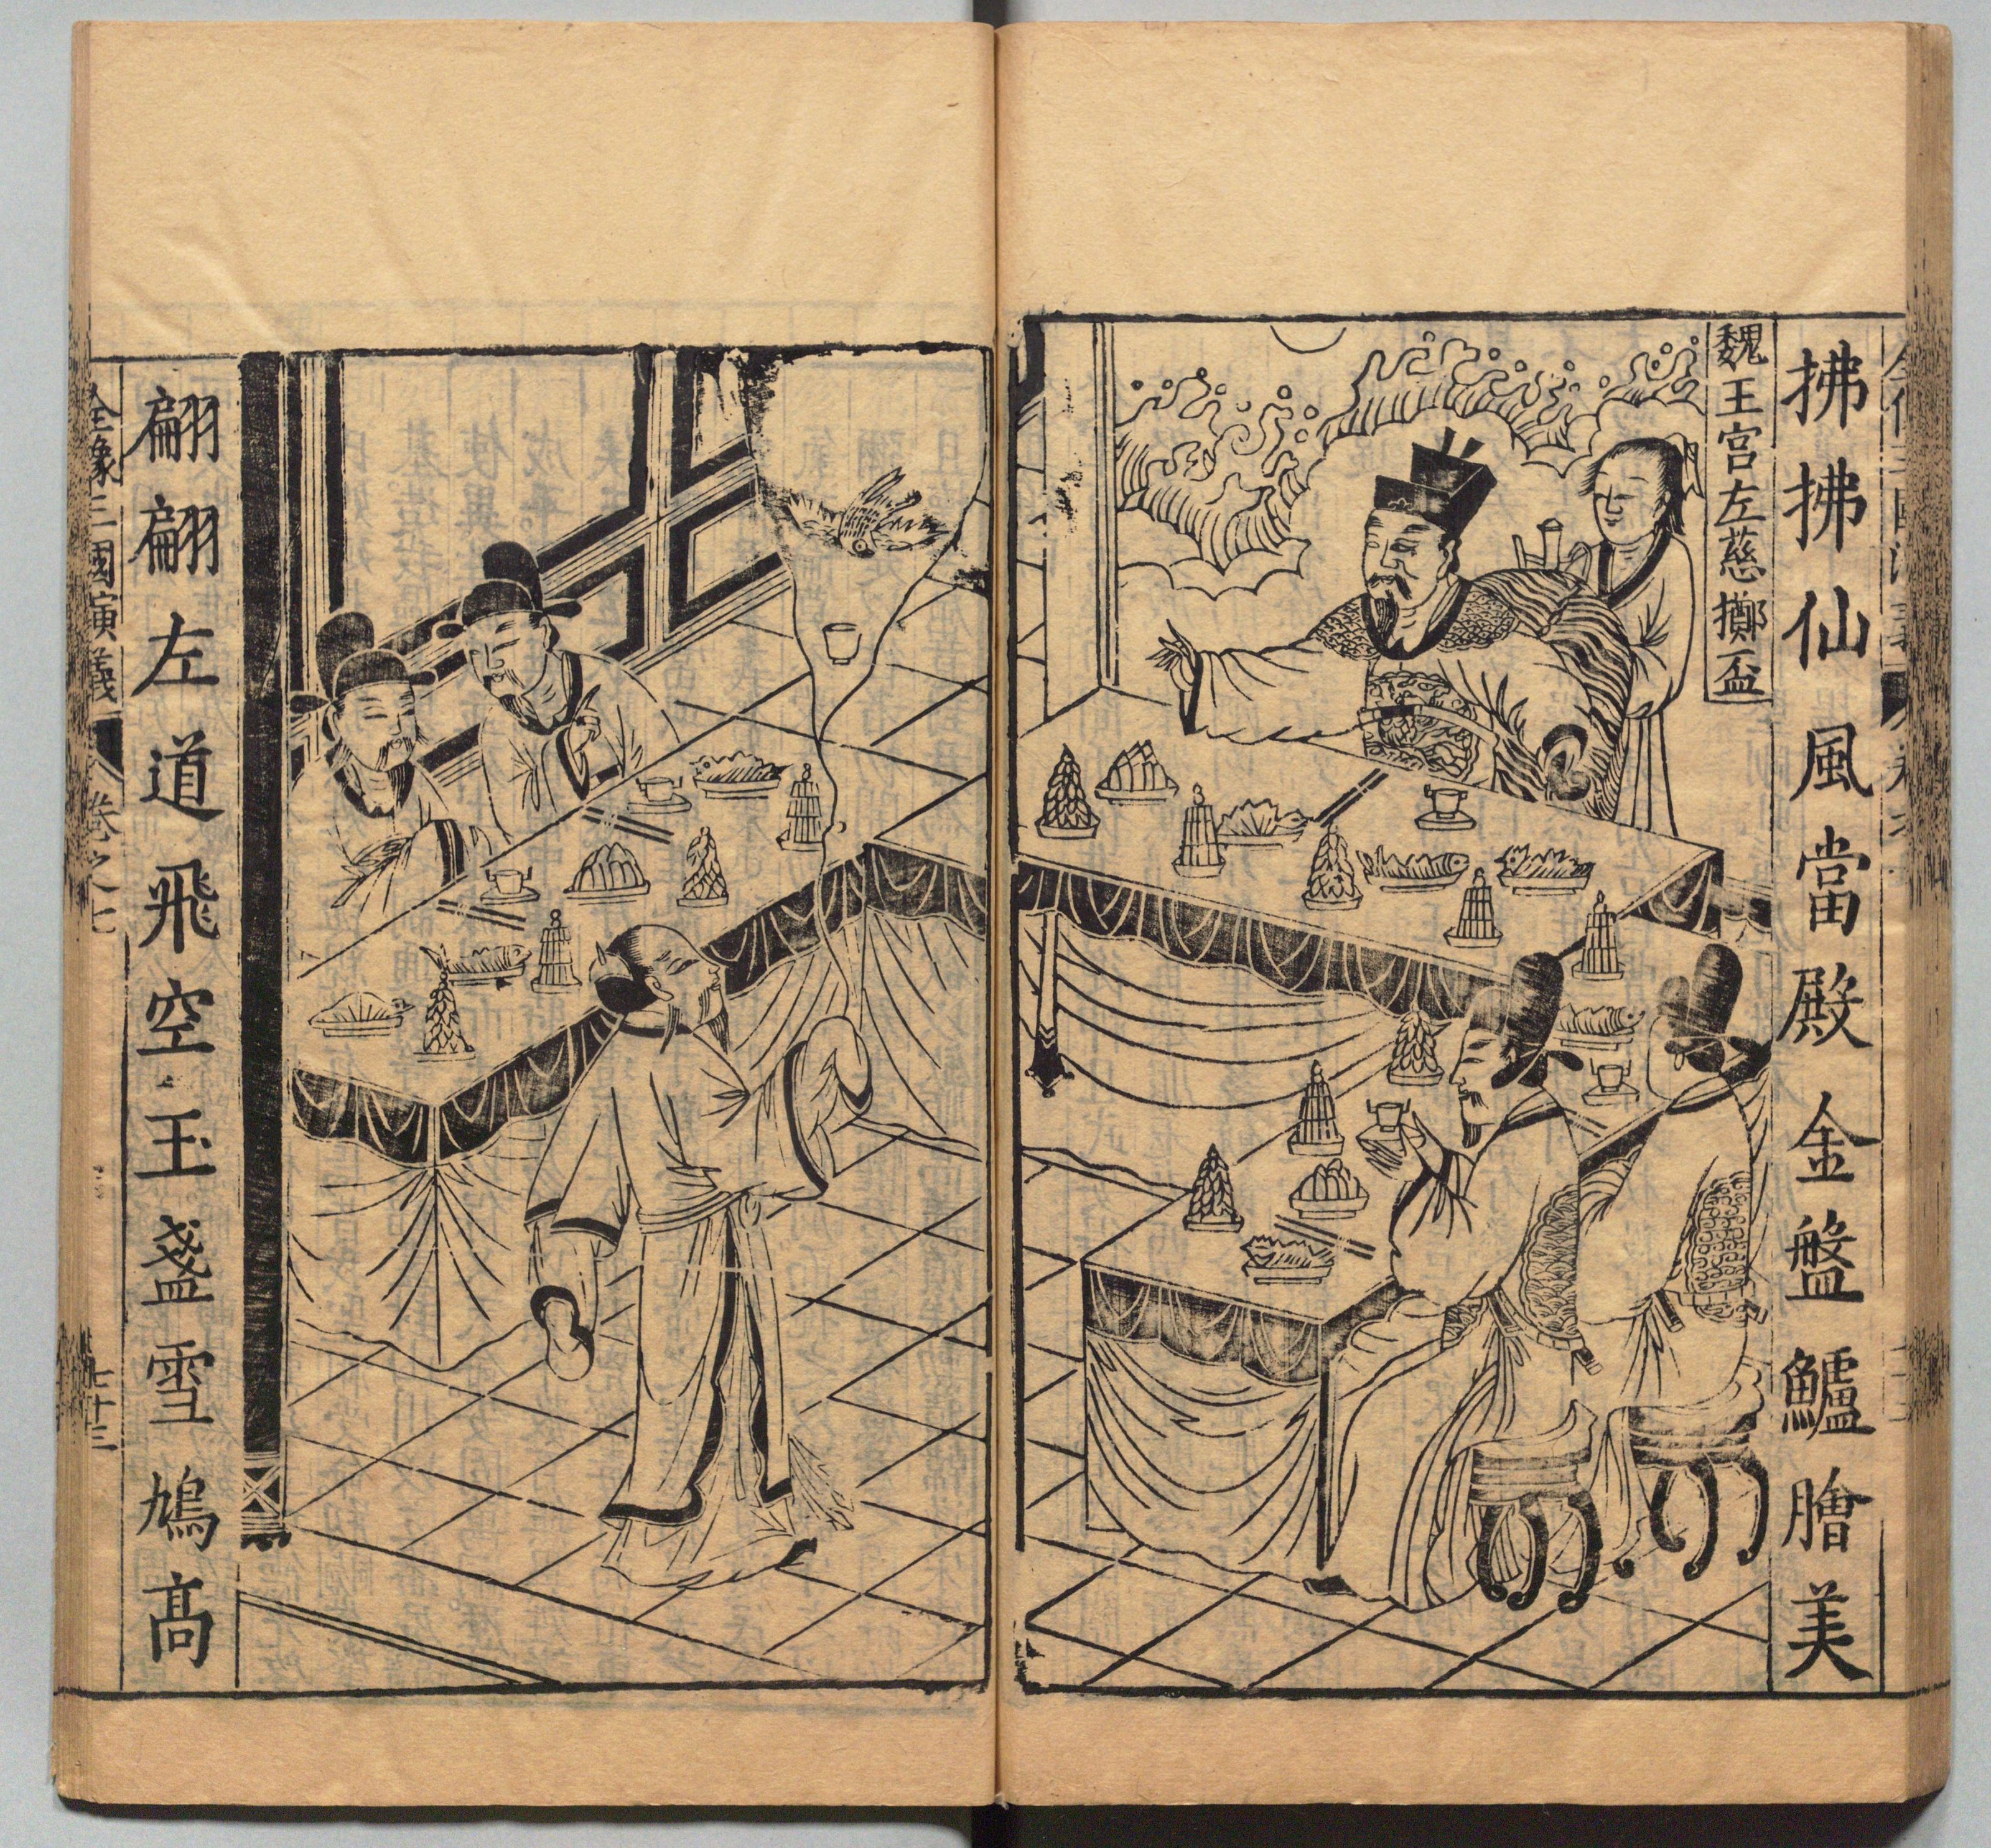 拂拂仙風當殿金盤鱸膾美
魏王宮左慈擲盃
翩翩左道飛空玉盞雪鳩高
全像三國演義
卷之七
七十三